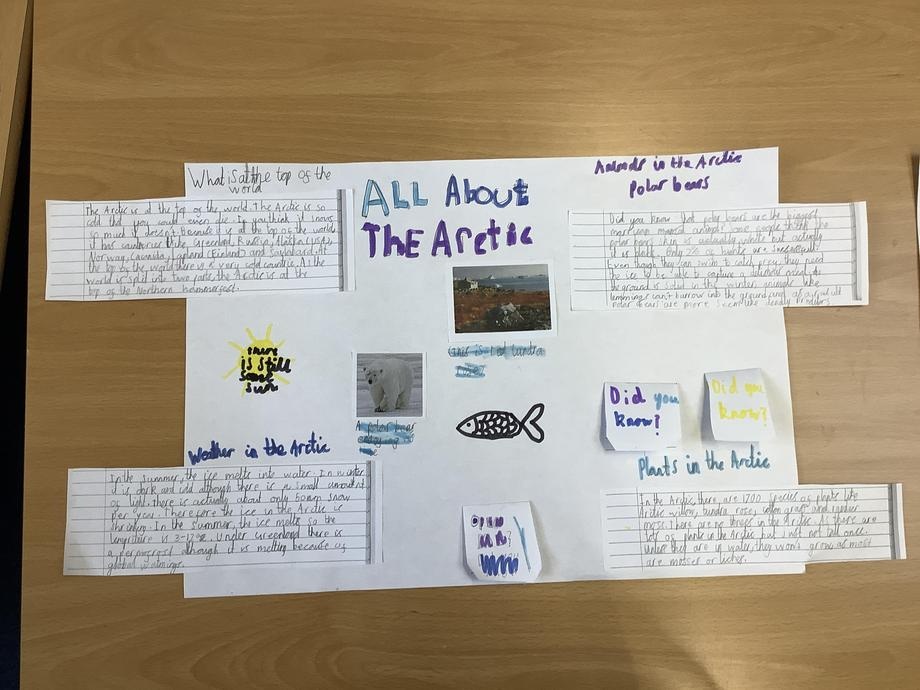 What is at the top of the
world
The Arctic is at the top of the world. The Arctic is so
cold that you could even die. If you think it snows
so much it doesn't because it is at the top of the world
it has countries like, Greenland, Russia, Alaska (USA),
Norway, Canada, Lapland (Finland) and
the top of the world there is a very cold country. As the
world is split into two parts, the Arctic is at the
top of the Northern
ALL About
THE Arctic
Animals in the Arctic
Polar bears
Did you know that polar bears are the biggest
people think the
polar bears skin is actually white but actually
it is black. Only 2% of hunts are successful.
Even though they can swim to catch prey, they need
the ice to be able to capture a
the ground is solid in the winter, animals like
lemmings can't burrow into the ground
Polar bears are more
there
is still
some
sun
this is
tundra
A polar bear
enjoying
Did you
know?
Did you
know?
Weather in the Arctic
In the summer, the ice melts into water. In winter,
it is dark and cold although there is a small amount
of light. there is actually about only 60cm snow
per year. Therefore the ice in the Arctic is
shrinking. In the Summer, the ice melts so the
is 3-12°c. Under Greenland there is
a although it is melting because of
global
Plants in the Arctic
In the Arctic, there are 1700 species of plants like
Arctic willow, tundra rose, cotton grass and
moss. There are no trees in the Arctic. As there are
lots of plants in the Arctic but not all once.
Unless they are in water, they won't grow as most
are mosses or